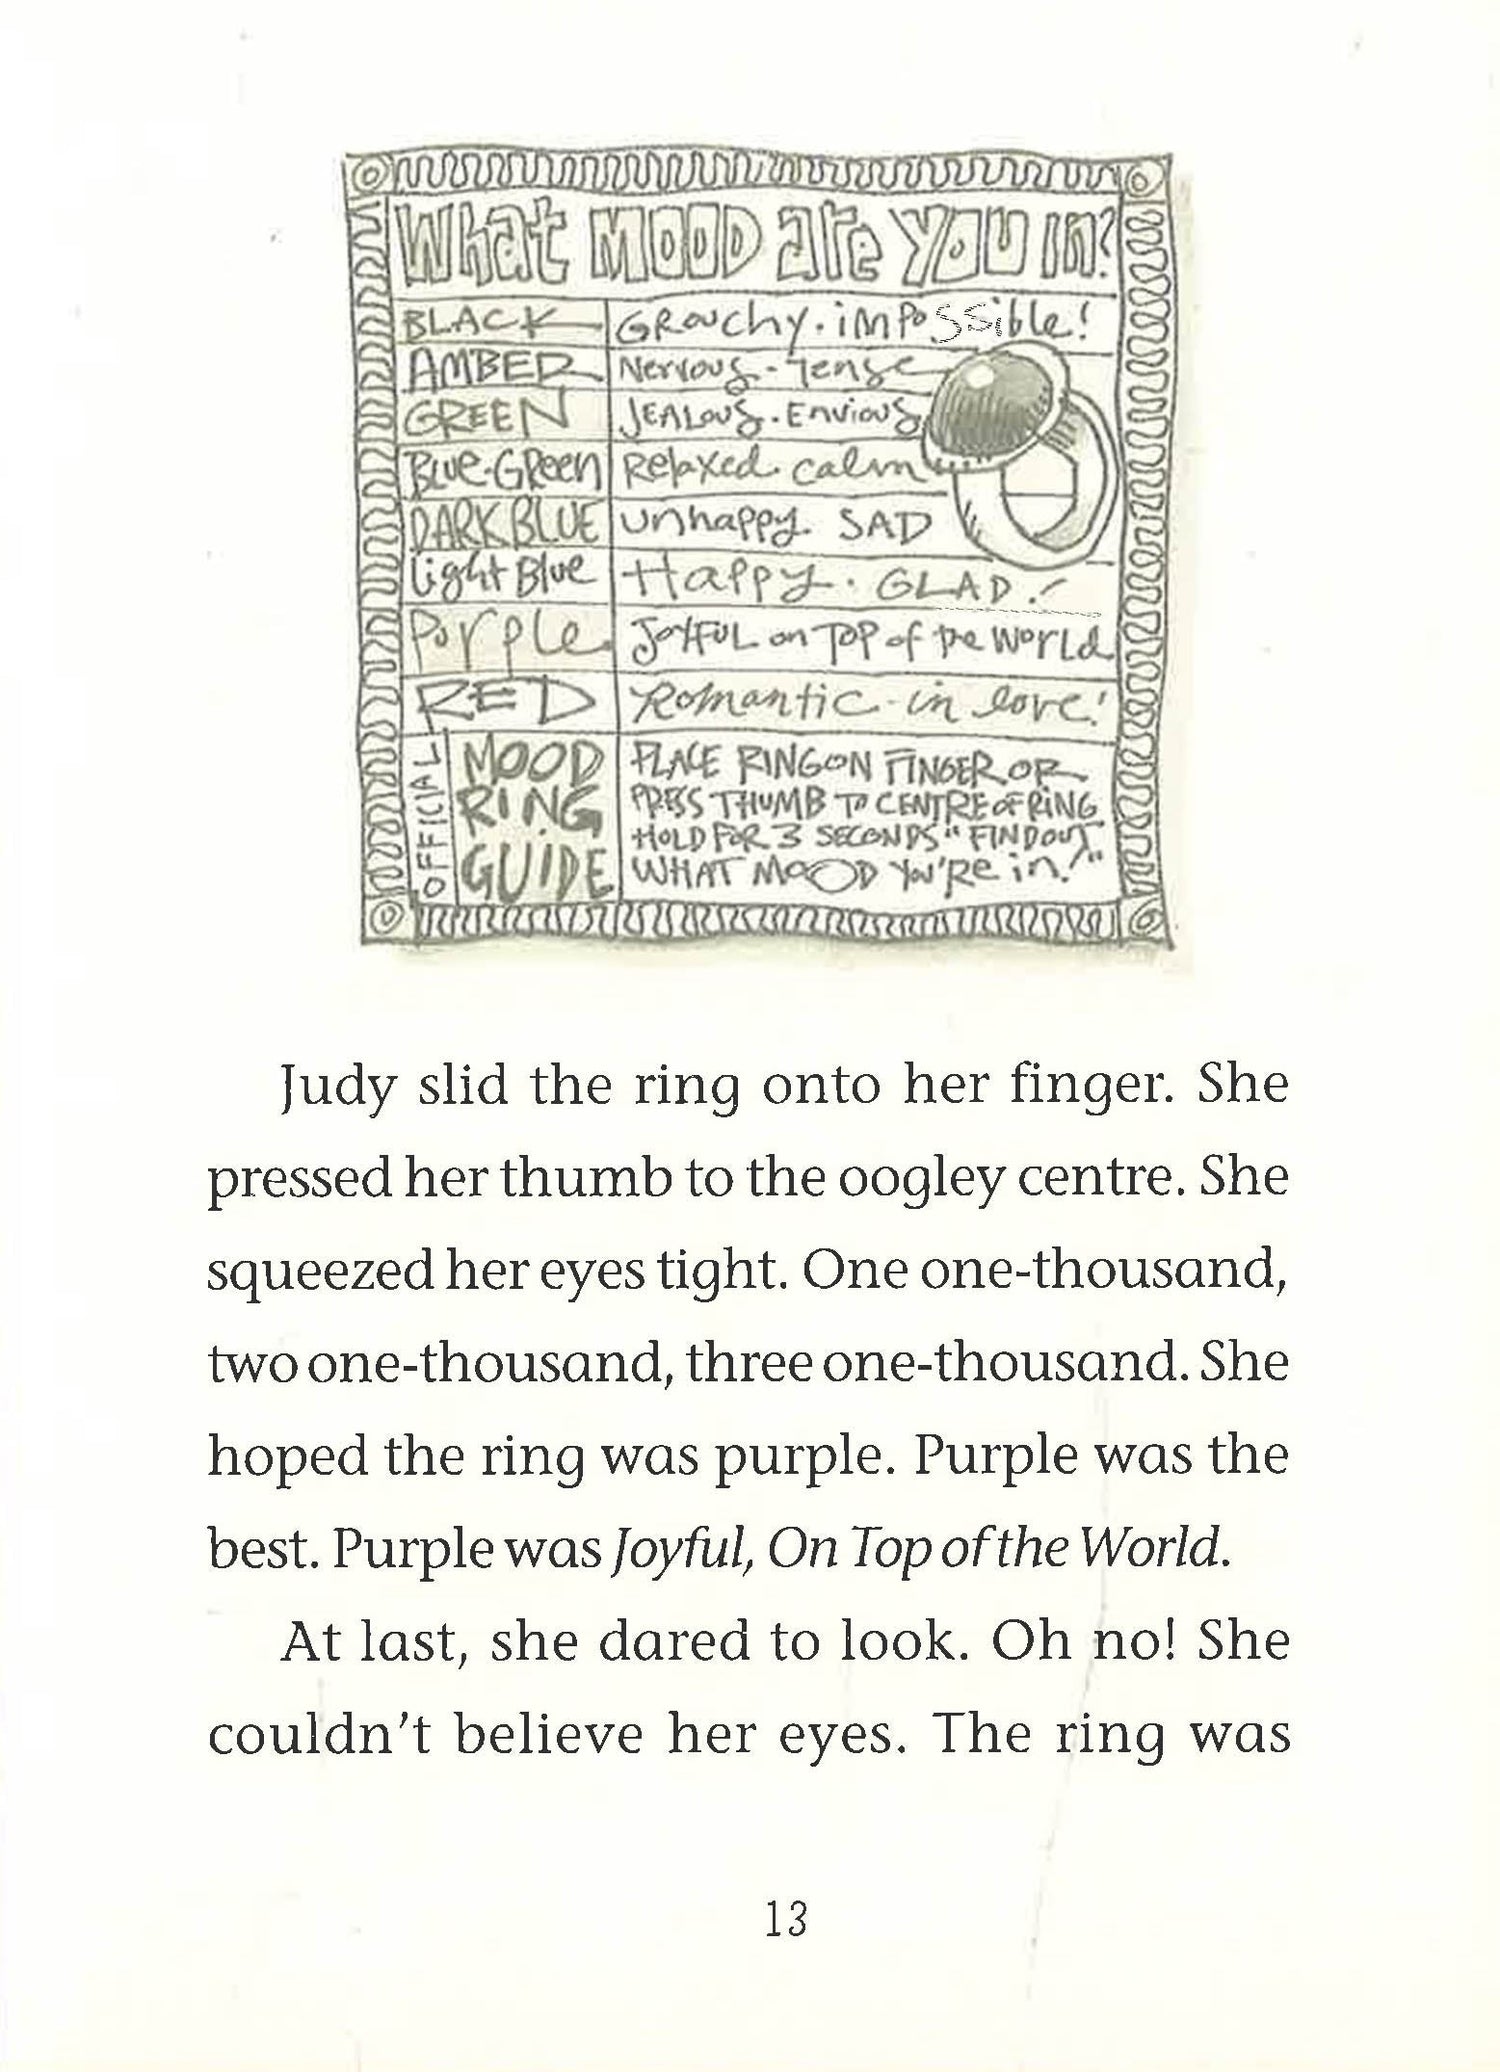 What MOOD are you in?
BLACK Grouchy. impossible!
AMBER Nervous - Tense
GREEN JEALOUS. Envious
Blue-Green Relaxed. calm
DARK BLUE unhappy. SAD
Light Blue Happy. GLAD!
Purple JOYFUL on TOP of the World
RED Romantic - in love!
OFFICIAL
MOOD
RING
GUIDE
PLACE RING ON FINGER OR
PRESS THUMB TO CENTRE OF RING
HOLD FOR 3 SECONDS " FIND OUT
WHAT MOOD YOU'RE in!"
Judy slid the ring onto her finger. She
pressed her thumb to the oogley centre. She
squeezed her eyes tight. One one-thousand,
two one-thousand, three one-thousand. She
hoped the ring was purple. Purple was the
best. Purple was Joyful, On Top of the World.
At last, she dared to look. Oh no! She
couldn't believe her eyes. The ring was
13